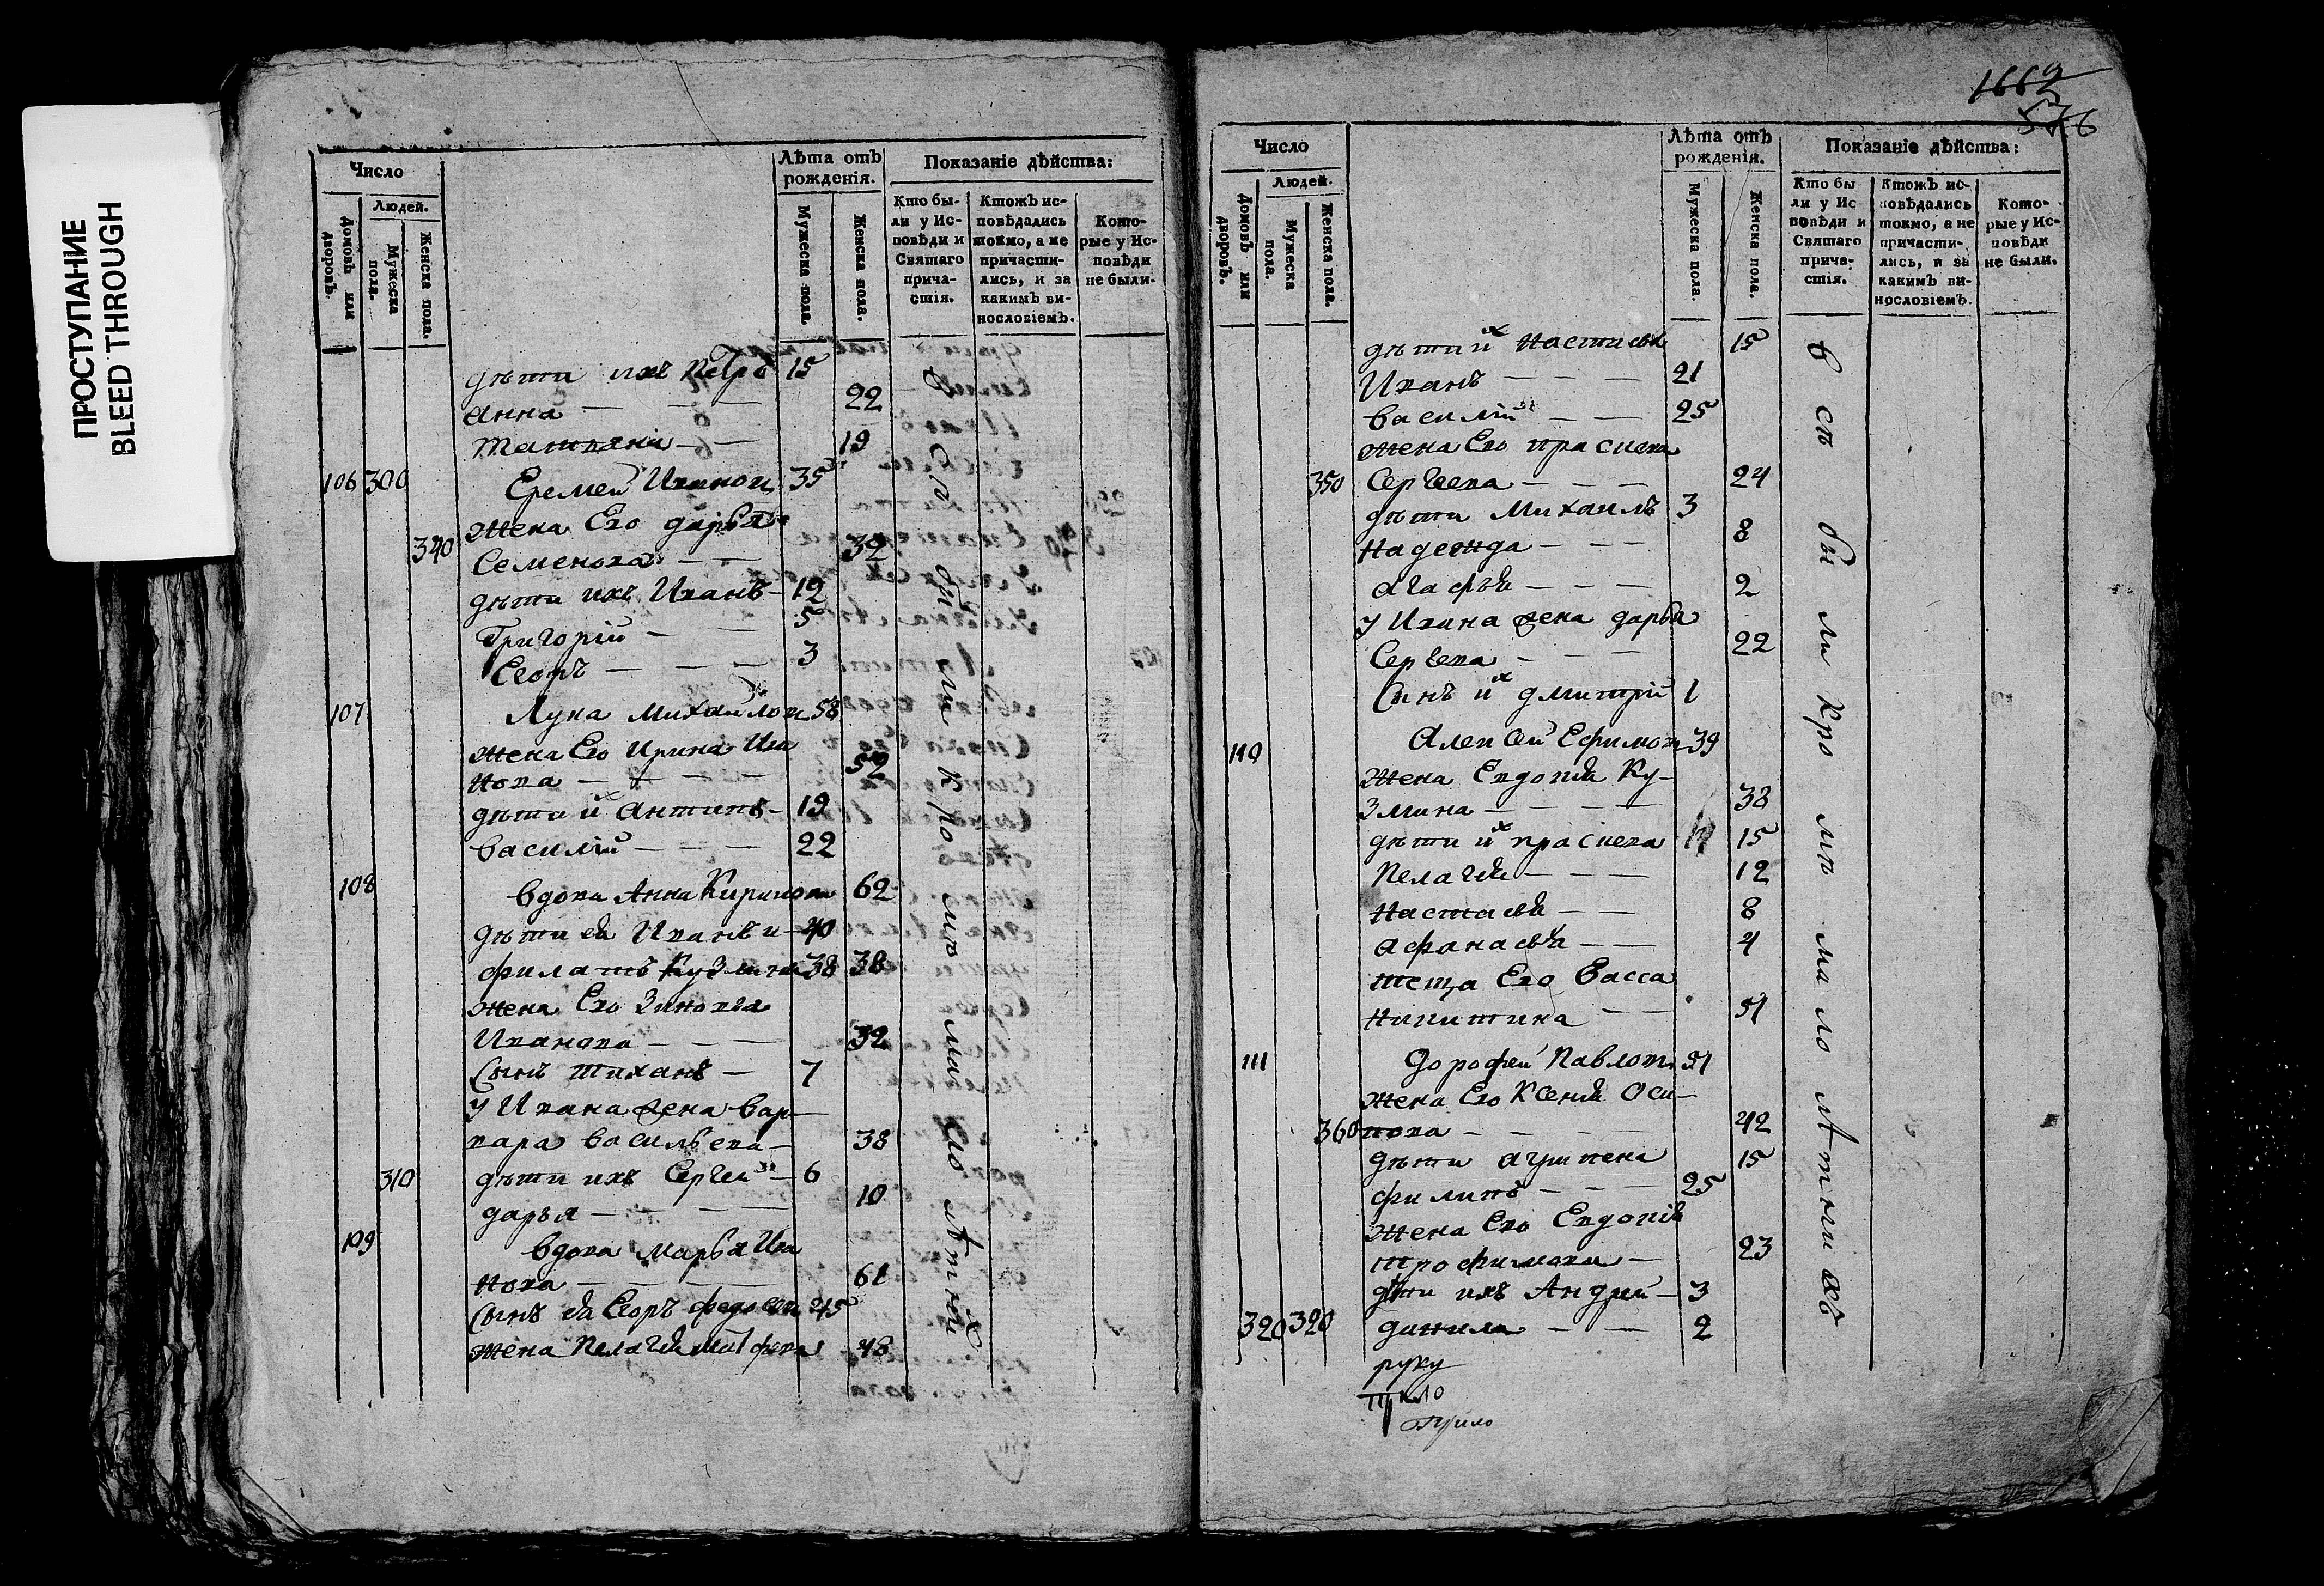 ПРОСТУПАНИЕ
BLEED THROUGH
Число
Лѣта отъ рожденія.
Показаніе дѣйства:
Домовъ или дворовъ.
Людей.
Мужеска пола.
Женска пола.
Мужеска пола.
Женска пола.
Кто бы-
ли у Ис-
повѣди и
Святаго
прича-
стія.
Ктожъ ис-
повѣдались
токмо, а не
причасти-
лись, и за
какимъ ви-
нословіемъ.
Кото-
рые у Ис-
повѣди
не были.
дѣти ихъ Петръ 15
Анна 22
Татияна 19
106 300 Еремей Иванов 35
жена Его дарья
340 Семенова 32
дѣти ихъ Иванъ 12
Григорій 5
Егоръ 3
107 Лука Михайлов 58
жена Его Ирина Ива
нова 52
дѣти их Антипъ 19
Василій 22
108 вдова Анна Кирилова 62
дѣти ея Иванъ и 40
филатъ Кузмины 38 38
жена Его Зиновья
Иванова 32
Сынъ тиханъ 7
у Ивана жена Вар-
вара васильева 38
310 дѣти ихъ Сергей 6
дарья 10
109 вдова Марья Ива
нова 61
Сынъ ея Егоръ федосеев 45
жена Пелагея 48
всѣ были кромѣ малолѣтней
1662
576
Число
Лѣта отъ рожденія.
Показаніе дѣйства:
Домовъ или дворовъ.
Людей.
Мужеска пола.
Женска пола.
Мужеска пола.
Женска пола.
Кто бы
ли у Ис
повѣди и
Святаго
прича-
стія.
Ктожъ ис-
повѣдались
токмо, а не
причасти-
лись, и за
какимъ ви-
нословіемъ.
Кото-
рые у Ис-
повѣди
не были.
дѣти их Настасья 15
Иванъ 21
Василій 25
жена Его прасковя
350 Сергеева 24
дѣти Михаилъ 3
Надежда 8
Агафья 2
у Ивана жена дарья
Сергеева 22
Сынъ их дмитрій 1
110 Алексей Ефимов 39
жена Евдокия Ку-
змина 38
дѣти их прасковя 15
Пелагея 12
Настасья 8
афанасья 4
теща Его Васса
Никитина 51
111 Дорофей Павлов 51
жена Его Ксения Оси-
360 пова 42
дѣти акулина 15
филипъ 25
жена Его Евдокия
трофимова 23
дѣти ихъ Андрей 3
320 320 данила 2
руку
всѣ были кромѣ малолѣтныихъ